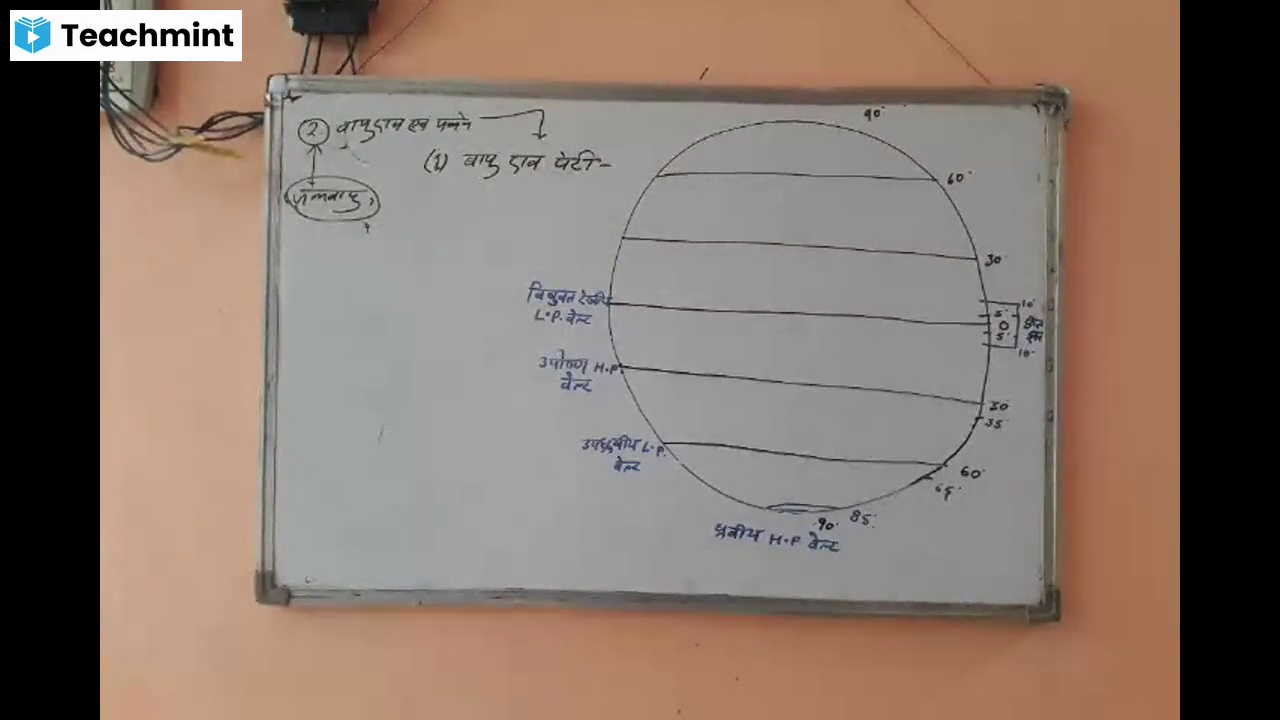 Teachmint
② वायुदाब एवं पवने
(1) वायु दाब पेटी-
जलवायु
90°
60°
30°
10°
5°
0
5°
10°
विषुवत रेखीय
L.P. बेल्ट
उपोष्ण H.P.
बेल्ट
30°
35°
उपध्रुवीय L.P.
बेल्ट
60°
65°
90° 85°
ध्रुवीय H.P बेल्ट